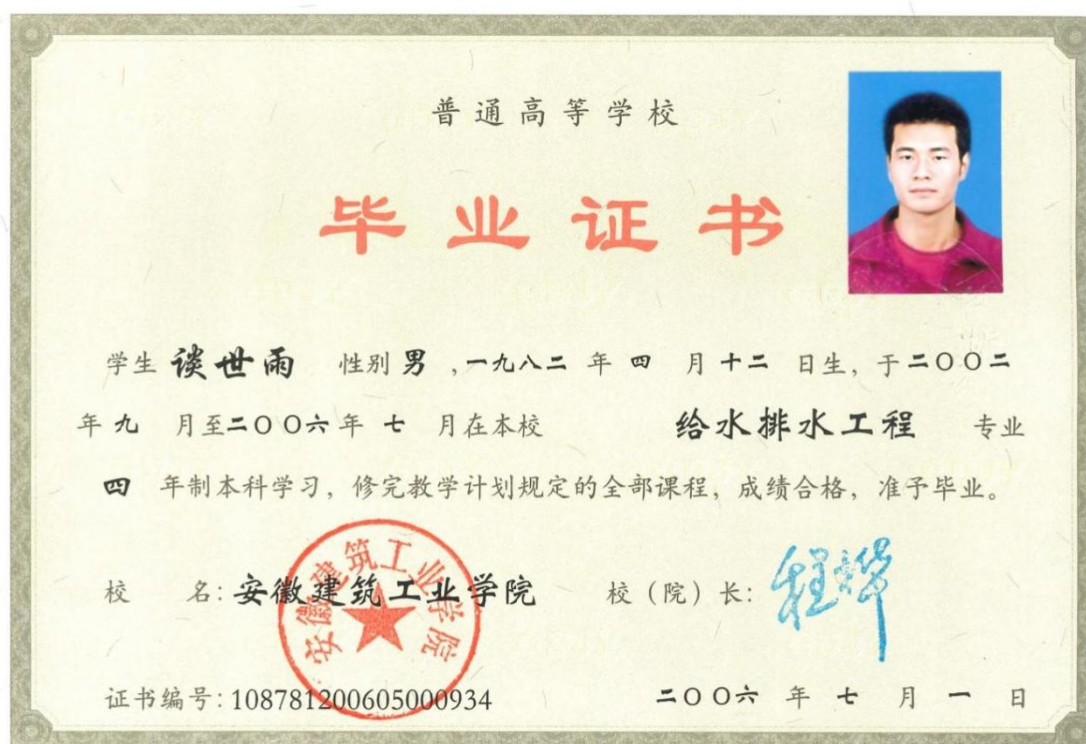 普通高等学校
毕业证书
学生 谈世雨 性别 男 ,一九八二 年 四 月 十二 日生, 于 二〇〇二
年 九 月至 二〇〇六 年 七 月在本校 给水排水工程 专业
四 年制本科学习, 修完教学计划规定的全部课程, 成绩合格, 准予毕业。
校 名: 安徽建筑工业学院 校 (院) 长:
安徽建筑工业学院
证书编号: 108781200605000934 二〇〇六 年 七 月 一 日